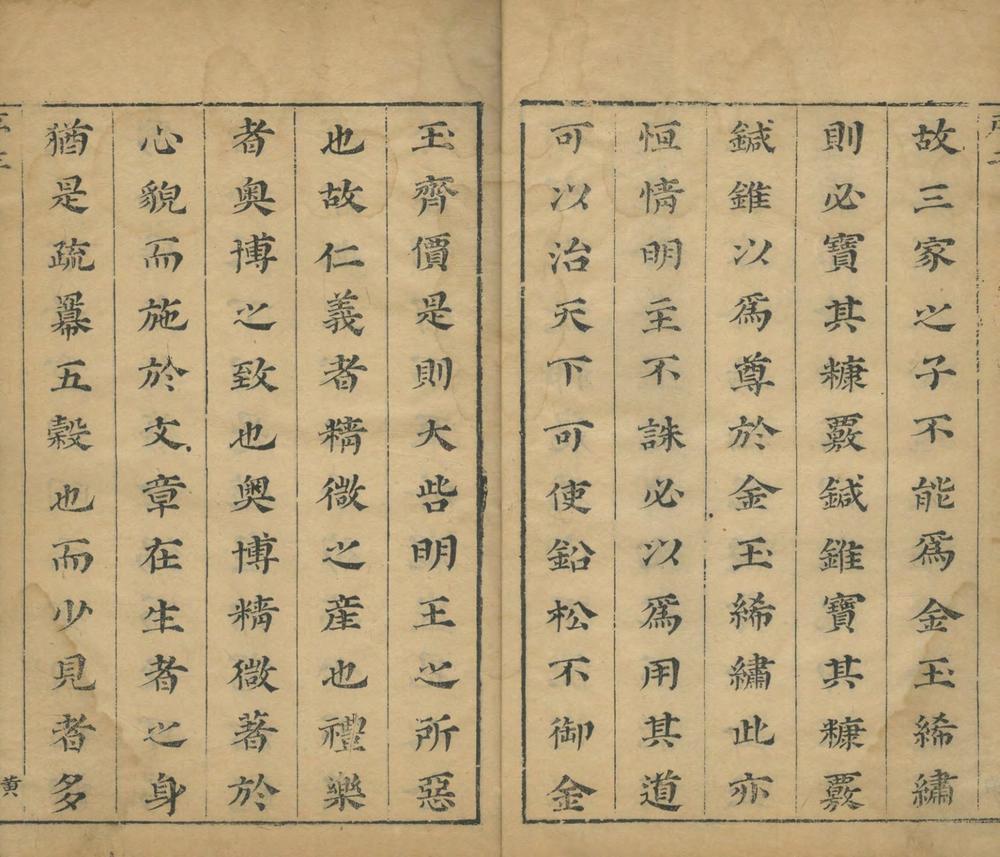 故三家之子不能爲金玉絺繡
則必寶其糠覈鍼錐寶其糠覈
鍼錐以爲尊於金玉絺繡此亦
恒情明主不誅必以爲用其道
可以治天下可使鉛松不御金
玉齊價是則大呰明王之所惡
也故仁義者精微之産也禮樂
者奧博之致也奧博精微著於
心貌而施於文章在生者之身
猶是疏冪五穀也而少見者多
黄